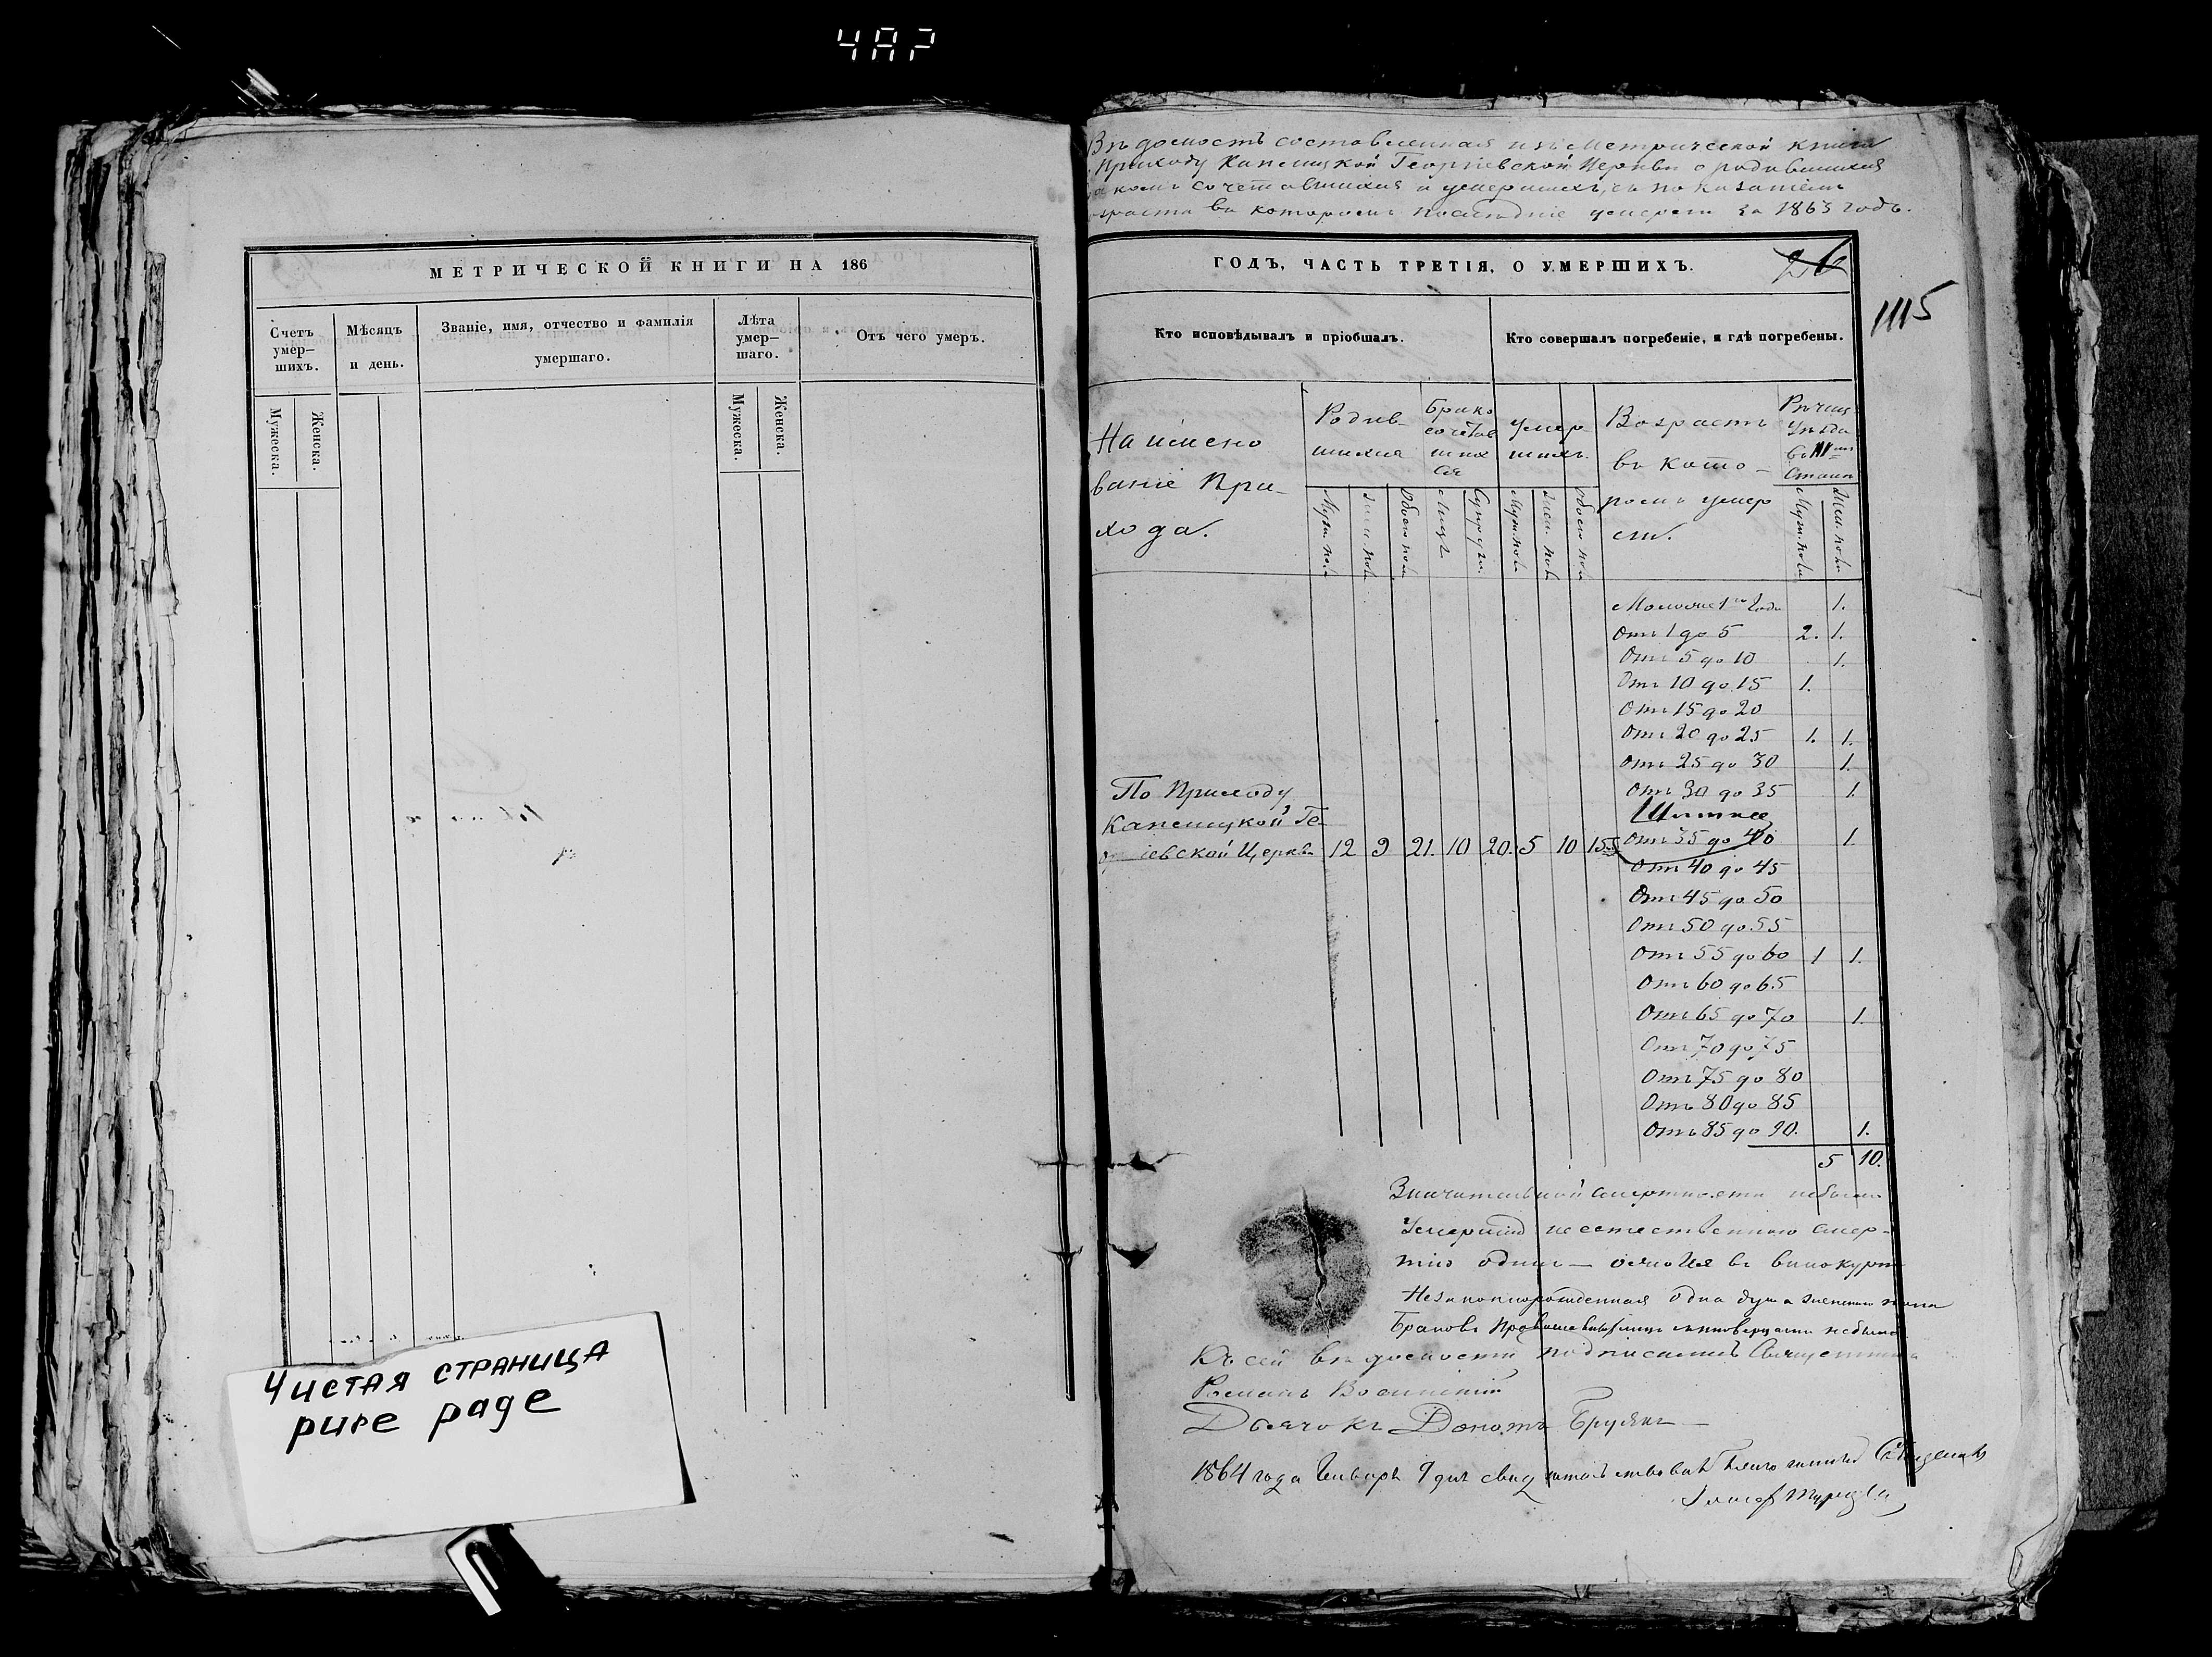 4AP
МЕТРИЧЕСКОЙ КНИГИ НА 186
Счетъ умер–шихъ.
Мѣсяцъ и день.
Званіе, имя, отчество и фамилія умершаго.
Лѣта умер–шаго.
Отъ чего умеръ.
Мужеска.
Женска.
Мужеска.
Женска.
Чистая страница
pure page
Вѣдомость составленная изъ Метрической книги
Приходу Капенидкой Георгіевской Церкви о родившихся
сочетавшихся и умершихъ, съ показаніемъ
возраста въ которомъ послѣдніе умерли за 1863 годъ.
ГОДЪ, ЧАСТЬ ТРЕТІЯ, О УМЕРШИХЪ.
26
1115
Кто исповѣдывалъ и пріобщалъ.
Кто совершалъ погребеніе, и гдѣ погребены.
Наимено
ваніе При–
хода.
Родив–
шихся
Брако
сочетав
шихся
умер–
шихъ.
Возрастъ
въ кото–
ромъ умер
ли.
Рѣчиц
Уѣзда
въ III мъ
Станѣ
Муж. пола
Жен. пола
Обоего пола
Лицъ
Супруж.
Муж. пола
Жен. пола
Обоего пола
Муж. пола
Жен. пола
Моложе 1го Года 1.
Отъ 1 до 5 2. 1.
Отъ 5 до 10 1.
Отъ 10 до 15 1.
Отъ 15 до 20
Отъ 20 до 25 1. 1.
Отъ 25 до 30 1.
По Приходу Отъ 30 до 35 1.
Георгіевской Церкви 12 9 21. 10 20. 5 10 15. Отъ 35 до 40 1.
Отъ 40 до 45
Отъ 45 до 50
Отъ 50 до 55
Отъ 55 до 60 1 1.
Отъ 60 до 65
Отъ 65 до 70 1.
Отъ 70 до 75
Отъ 75 до 80
Отъ 80 до 85
Отъ 85 до 90. 1.
5 10.
Значительной смертности небыло
Умершій неестественною смер–
тію одинъ —
Незаконнорожденная одна душа женскаго пола
Браковъ Православныхъ лицъ съ иновѣрцами небыло
Къ сей вѣдомости подписались Священникъ
Романъ
Дьячокъ Донатъ
1864 года Генваря 9 дня